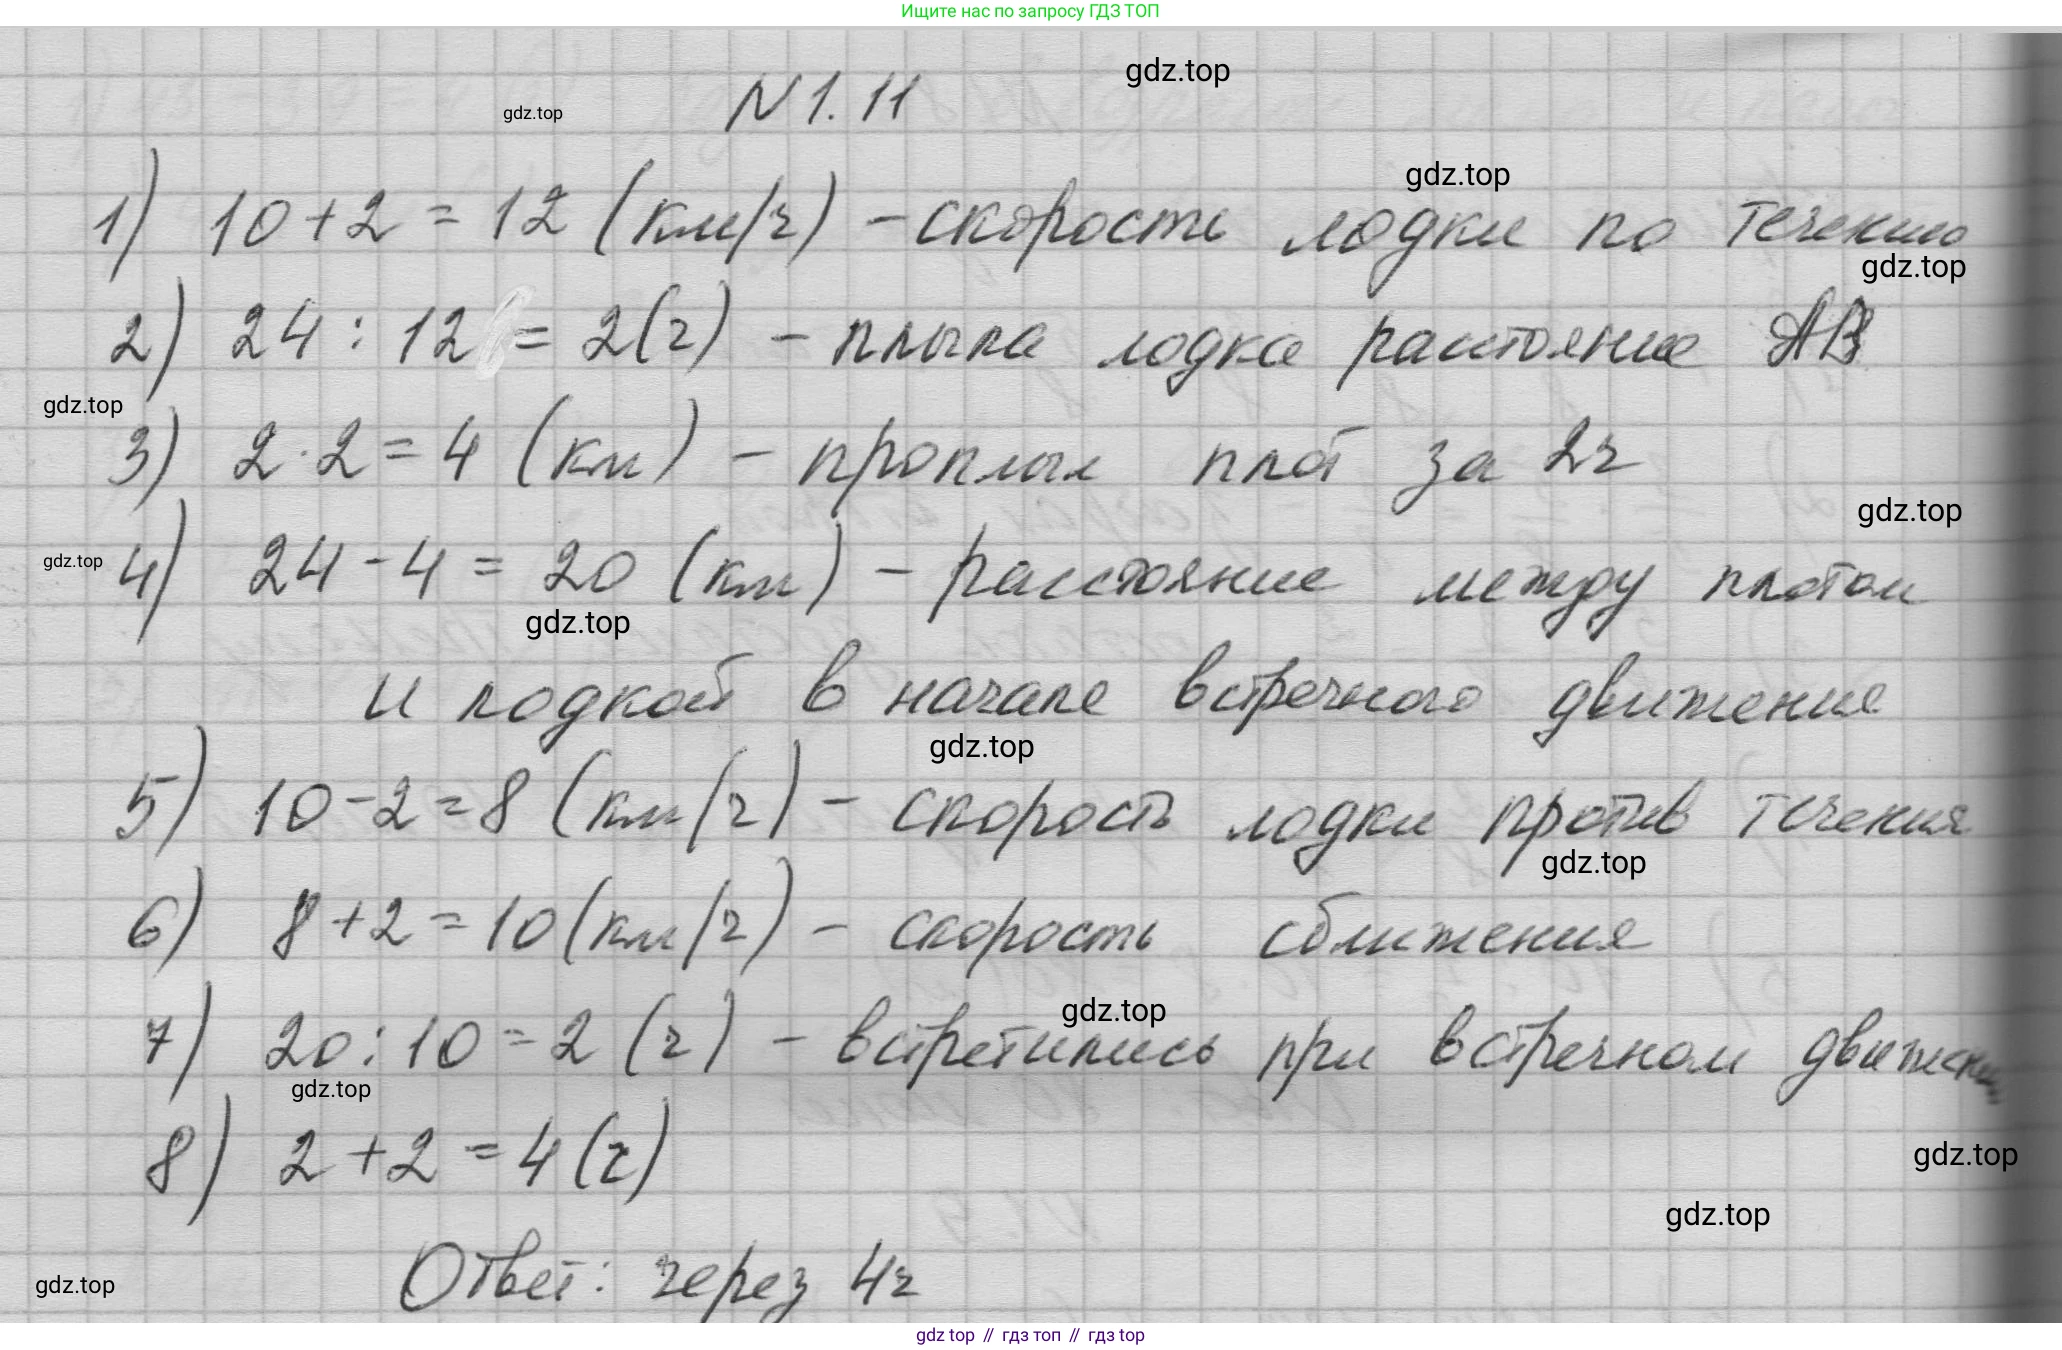 Ищите нас по запросу ГДЗ ТОП
gdz.top
N 1.11
gdz.top
gdz.top
1) 10+2 = 12 (км/ч) - скорость лодки по течению
gdz.top
2) 24 : 12 = 2(ч) - плыла лодка расстояние AB
gdz.top
3) 2·2 = 4 (км) - проплыл плот за 2ч
gdz.top
gdz.top
4) 24 - 4 = 20 (км) - расстояние между плотом
gdz.top
и лодкой в начале встречного движение
gdz.top
5) 10-2=8 (км/ч) - скорость лодки против течения
gdz.top
6) 8+2=10 (км/ч) - скорость сближения
gdz.top
7) 20:10=2 (ч) - встретились при встречном движении
gdz.top
8) 2+2=4(ч)
gdz.top
gdz.top
Ответ: через 4ч
gdz.top
gdz top // гдз топ // гдз top